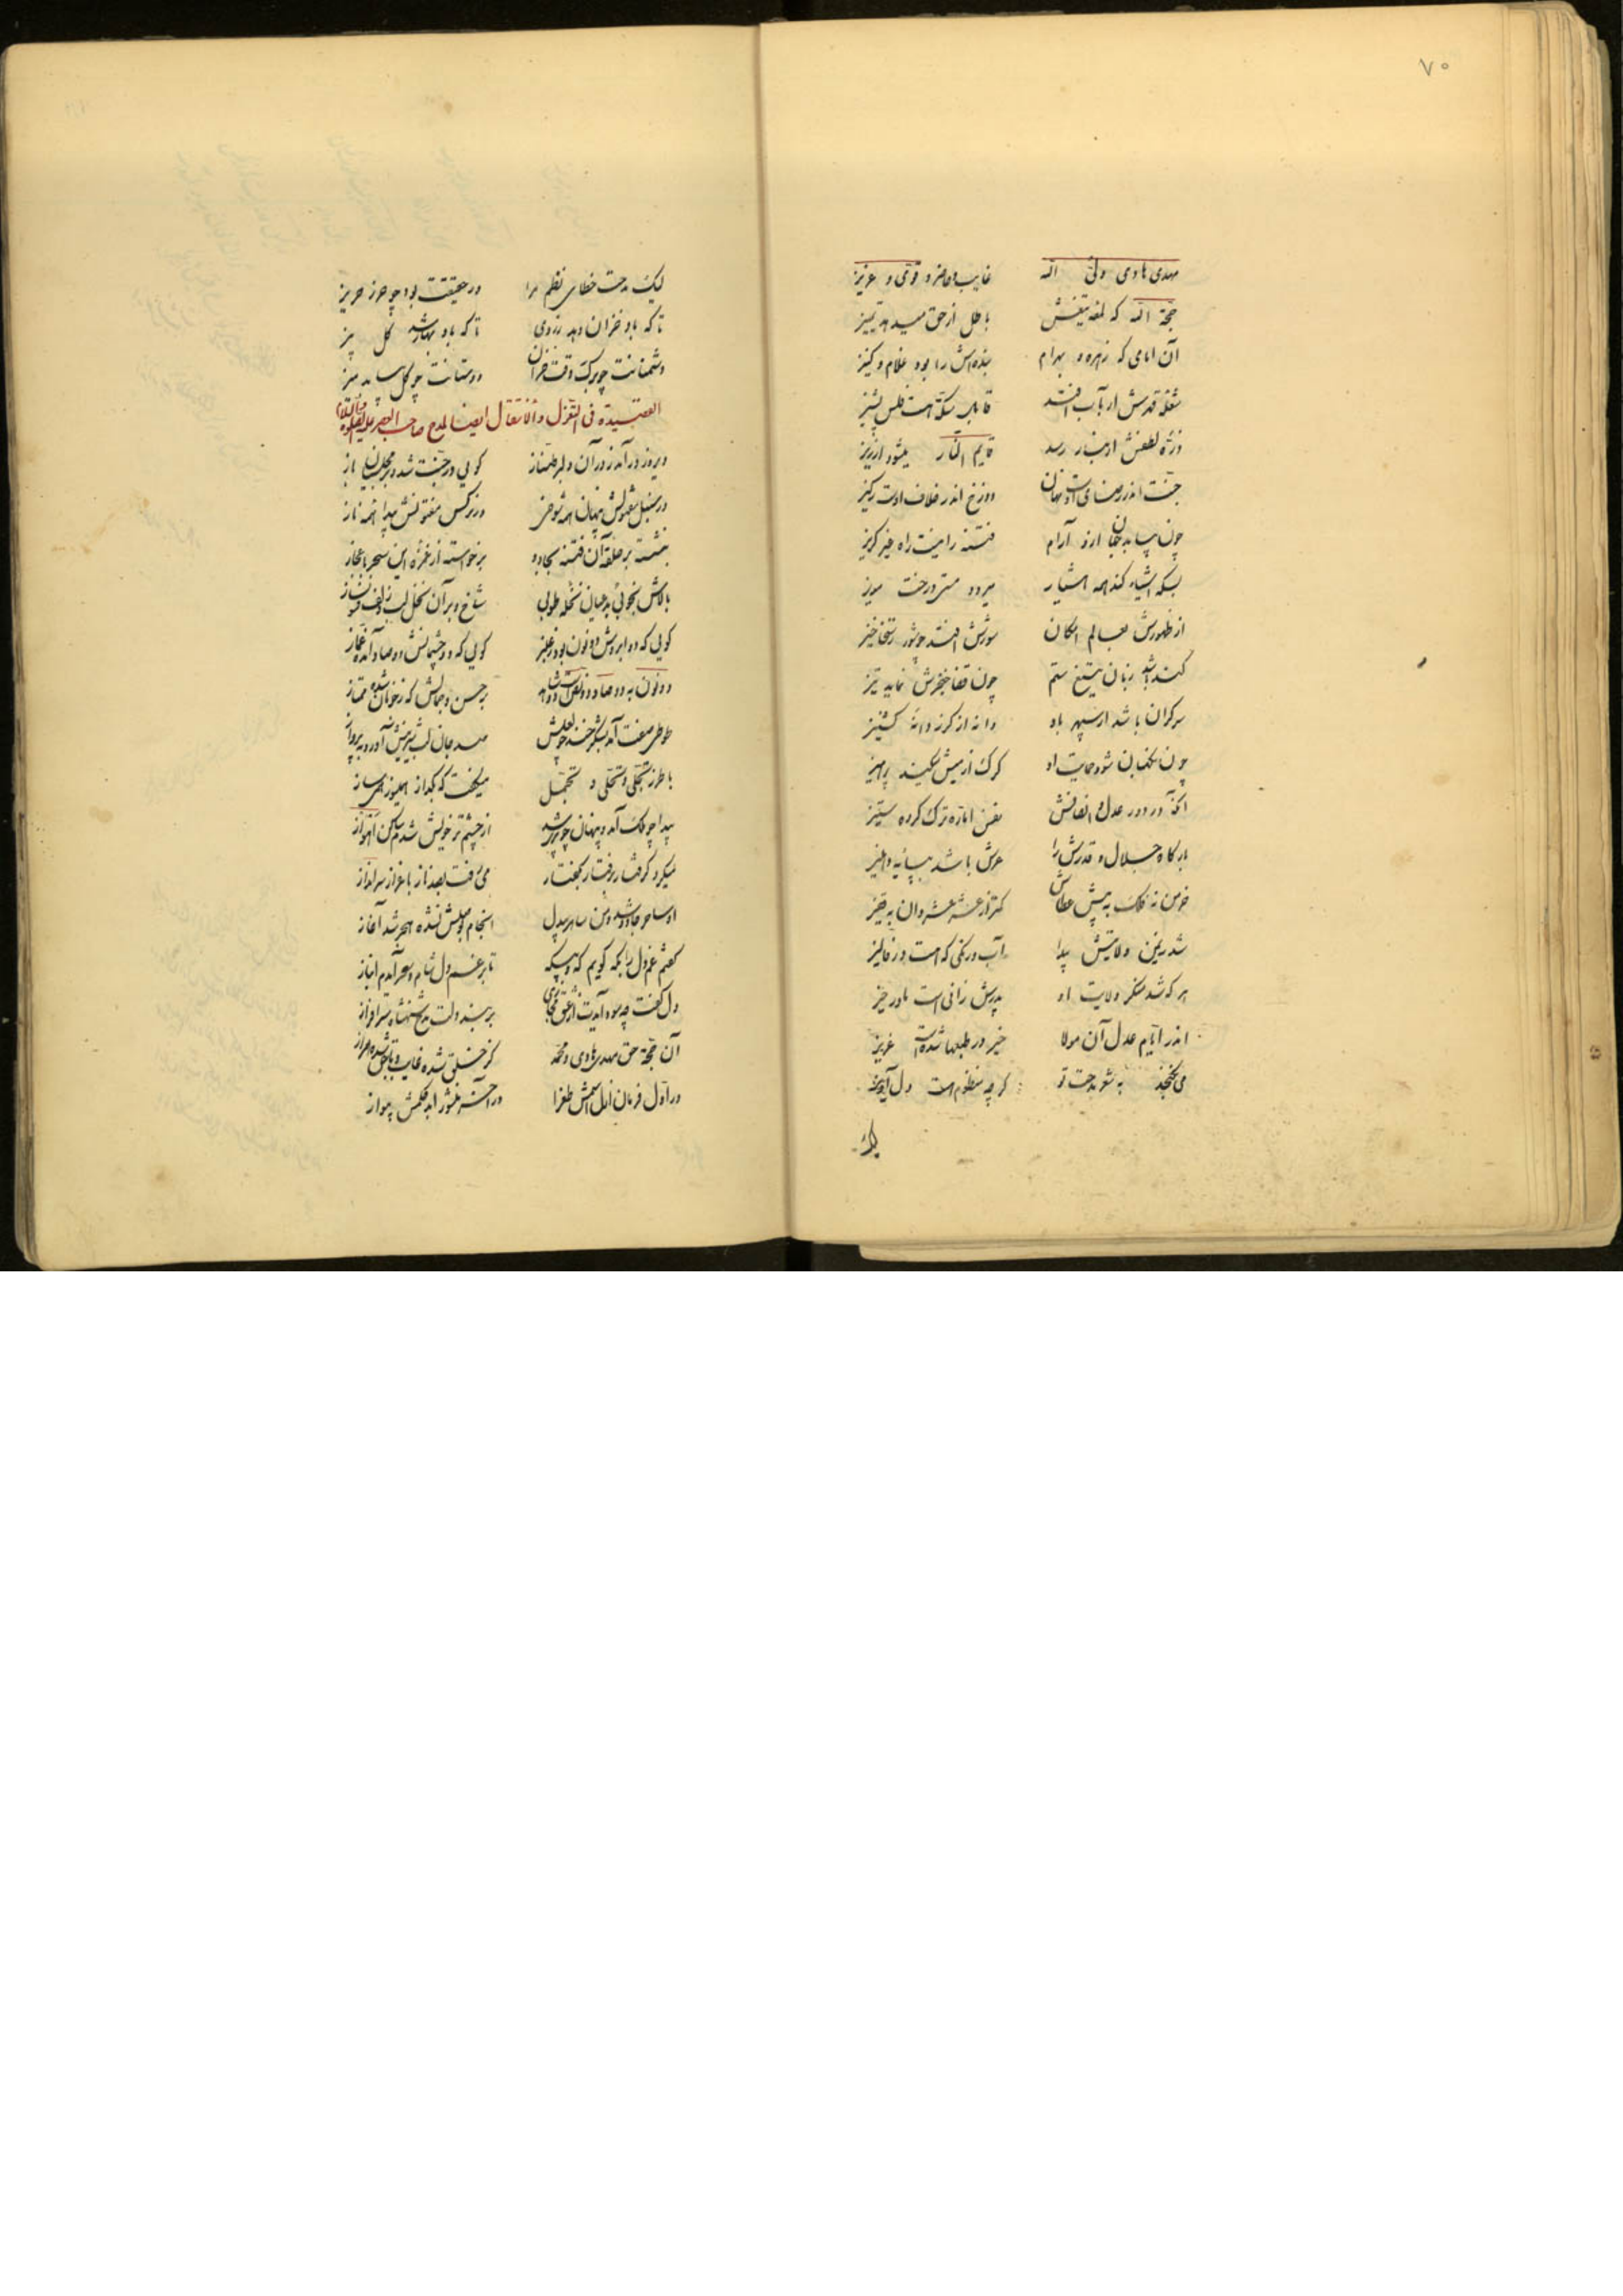 ۷۰
مهدی هادی ولی الله غایب و حاضر و قوی و عزیز
حجة الله که لمعه تیغش باطل از حق میدهد تمییز
آن امامی که زهره و بهرام بنده‌اش را بود غلام و کنیز
شعله قدرش ار بآب افتد قابل سکه است فلس پشیز
ذره لطفش ار بنار رسد قایم النار میشود ارزیز
جنت اندر رضای اوست نهان دوزخ اندر خلاف اوست رکیز
چون بیابد جهان ازو آرام فتنه را نیست راه خیر گریز
بسکه اشیاء کند همه هشیار میرود مستی از درخت مویز
از ظهورش بعالم امکان شورش افتد چو شور رستخاخیز
کند باشد زبان تیغ ستم چون قضا خنجرش نماید تیز
سرگران باشد از سپهر باو دانه از گرز دانه گشنیز
چون نگهبان شود حمایت او گرگ از میش میکند پرهیز
آنکه در دور عدل و انصافش نفس اماره ترک کرده ستیز
بارگاه جلال و قدرش را عرش باشد بپایه دهلیز
خرمن نه فلک به پیش عطاش کمتر از عشر عشر دان به قفیز
شد زمین ولایتش پیدا آب و رنگی که هست در فالیز
هر که شد منکر ولایت او پدرش زانی است مادر حیز
اندر ایام عدل آن مولا خیر در طبعها شده است غریز
می نگنجد به شعر مدحت تو گرچه منظوم است دل آویز
لیک
لیک مدحت خطاس نظم مرا در حقیقت بود چو حرز حریز
تا که باد خزان دهد زردی تا که باد بهار شد گل بیز
دشمنانت چو برگ وقت خزان دوستانت چو گل بسایه سبز
القصیدة فی التغزل و الانتقال ایضا لمدح صاحب العصر علیه الصلوة والسلام
دیروز درآمد ز در آن دلبر طناز گویی در جنت شده بر مجلسیان باز
در سنبل مفتولش پنهان همه شوخی در نرگس مفتونش پیدا همه ناز
بنشست بر حلقه آن فتنه بجادو برخواسته از غمزه این سحر باعجاز
بالاش بخوبی بد عیان نخله طوبی شاخ و بر آن نخل لب و زلف
گویی که دو ابروش دو نون بود ز عنبر گویی که دو چشمانش دو صاد آمده غماز
دو نون به دو صاد و دو زلف است دو شاهد بر حسن و جمالش که ز خوبان شده ممتاز
طوطی صفت آمد بشکر خند چو لعلش صد جان لب شیرینش آورده بپرواز
با طرز تجلی و تحلی و تجمل میگفت که بگداز همیسوز همی ساز
پیدا چو ملک آمد و پنهان چو پری شد از چشم تر خویش شدم ساکن اهواز
میکرد گرفتار برفتار و بگفتار می رفت بصد ناز باعزاز سرانداز
او ساحر و جادو شد و من ساهر بیدل انجام وصلش نشده هجر شد آغاز
گفتم غم دل را بکه گویم که ز بسکه تا بر غم دل شام و سحر آمدم انباز
دل گفت چه سود آیدت از عشق مجازی بر بند دلت مدح شهنشاه سرافراز
آن حجة حق مهدی هادی و محمد کز خلق شده غایب و با حق شده همراز
در اول فرمان ازل اسمش طغرا در آخر منشور ابد حکمش پرواز